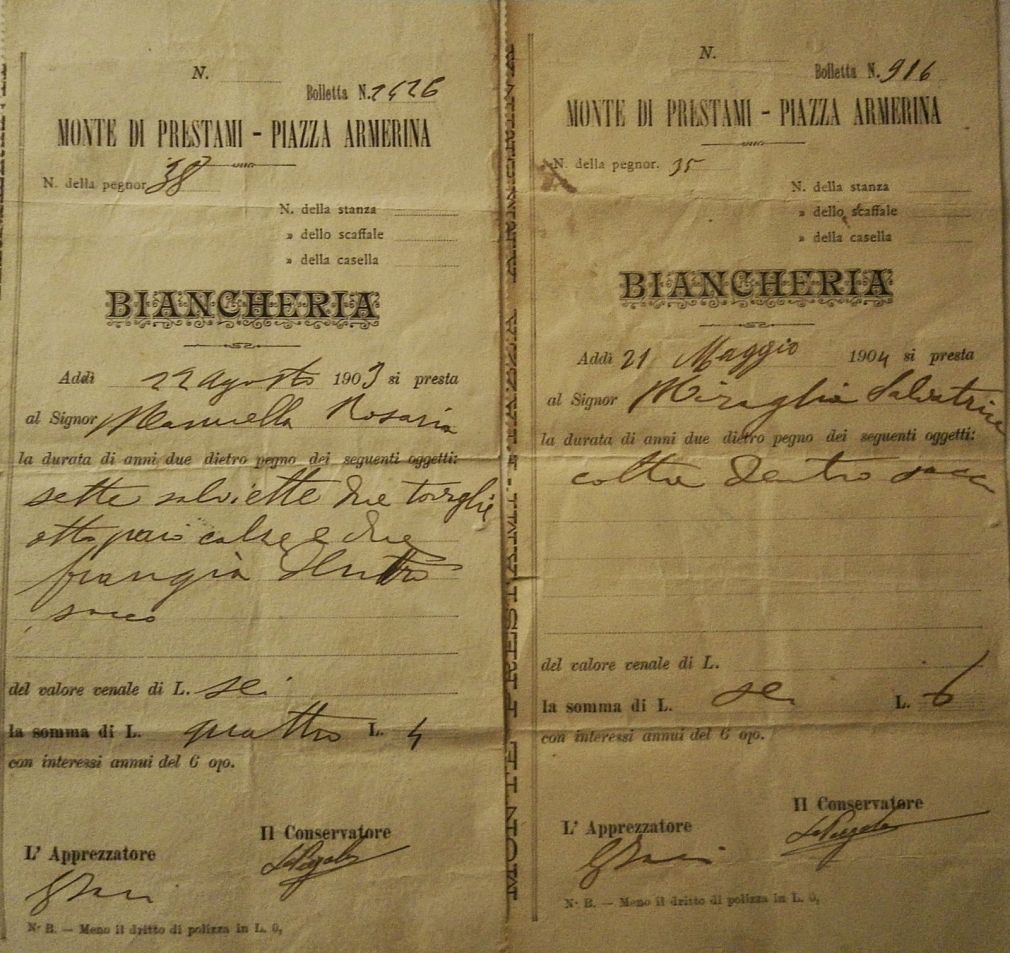 N.
Bolletta N. 2426
MONTE DI PRESTAMI - PIAZZA ARMERINA
N. della pegnor. 38
N. della stanza
» dello scaffale
» della casella
BIANCHERIA
Addì 22 agosto 1903 si presta
al Signor Rosaria
la durata di anni due dietro pegno dei seguenti oggetti:
sette salviette due tovaglie
otto paio calse e due
frangia dentro
sacco
del valore venale di L. sei
la somma di L. quattro L. 4
con interessi annui del 6 0|0.
Il Conservatore
L' Apprezzatore
N. B. — Meno il dritto di polizza in L. 0,
N.
Bolletta N. 916
MONTE DI PRESTAMI - PIAZZA ARMERINA
N. della pegnor. 35
N. della stanza
» dello scaffale
» della casella
BIANCHERIA
Addì 21 Maggio 1904 si presta
al Signor Miraglia Salvatrice
la durata di anni due dietro pegno dei seguenti oggetti:
dentro sacco
del valore venale di L.
la somma di L. sei L. 6
con interessi annui del 6 0|0.
Il Conservatore
L' Apprezzatore
N. B. — Meno il dritto di polizza in L. 0,